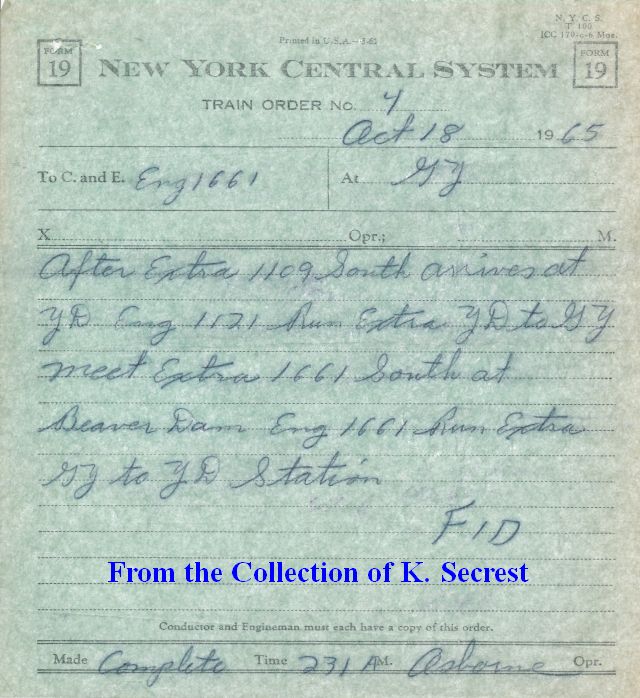 N. Y. C. S.
T 100
ICC 170-c-6 Mos.
Printed in U.S.A.—3-62
FORM 19
NEW YORK CENTRAL SYSTEM
FORM 19
TRAIN ORDER No. 4
Oct 18 1965
To C. and E. Eng 1661 At GJ
X Opr.; M.
After Extra 1109 South arrives at
YD Eng 1121 Run Extra YD to GJ
meet Extra 1661 South at
Beaver Dam Eng 1661 Run Extra
GJ to YD Station
FID
From the Collection of K. Secrest
Conductor and Engineman must each have a copy of this order.
Made Complete Time 231 AM. Osborne Opr.